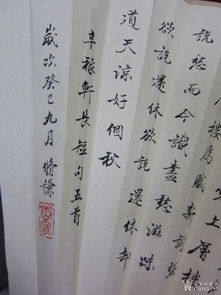 上層
樓爲賦新詞强
說愁而今識盡愁滋味
欲說還休欲說還休却
道天涼好個秋
辛稼軒長短句五首
歲次癸巳九月脩謙